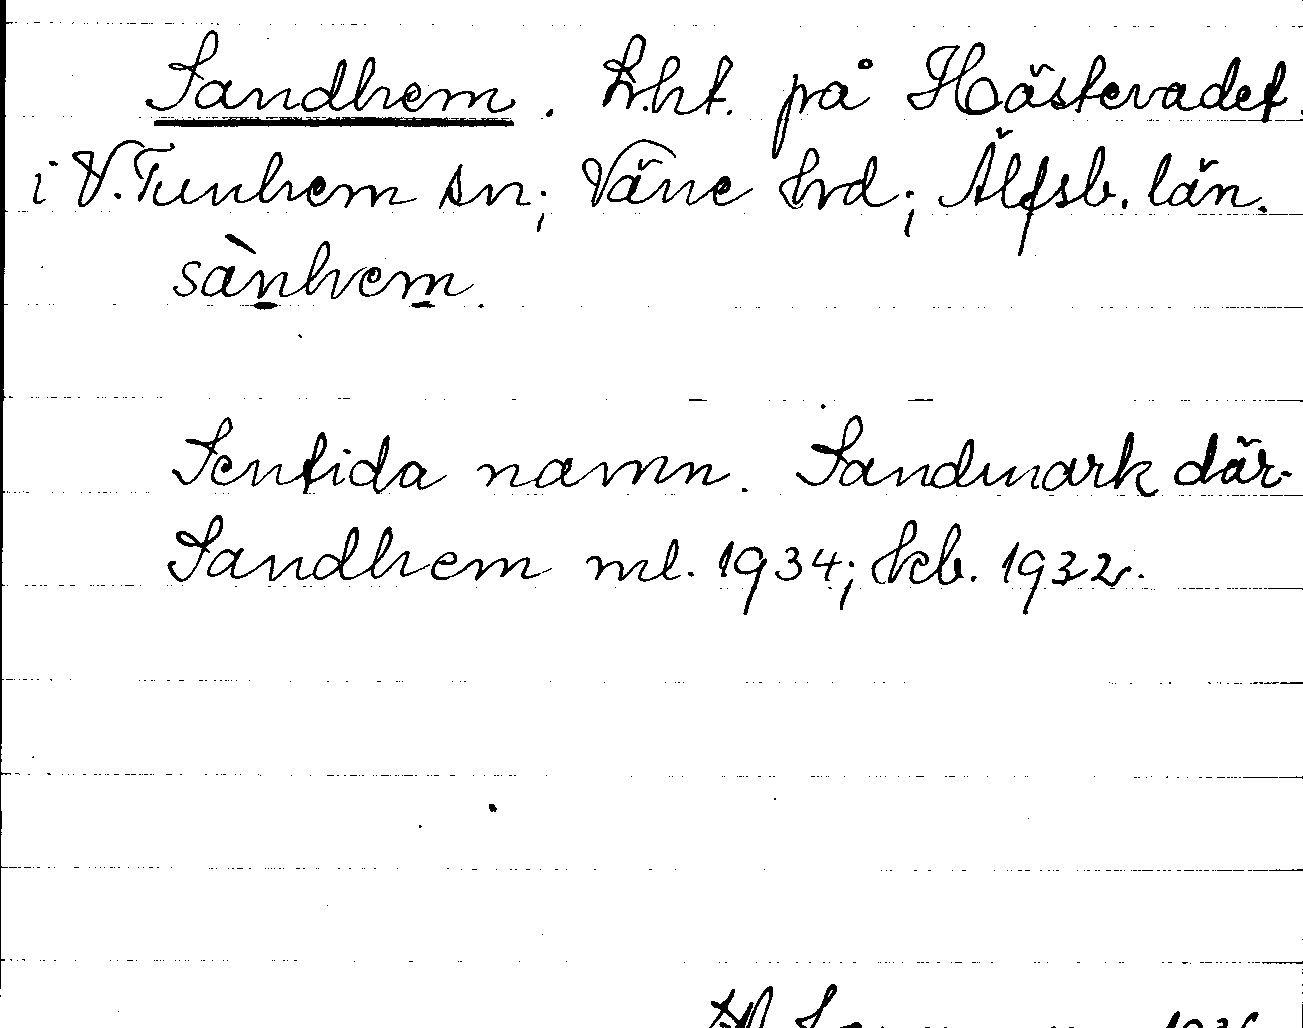 Sandhem. Lht. på Hästevadet
i V. Tunhem sn; Väne hrd; Älfsb. län.
sànhem.
Sentida namn. Sandmark där.
Sandhem ml. 1934; kb. 1932.